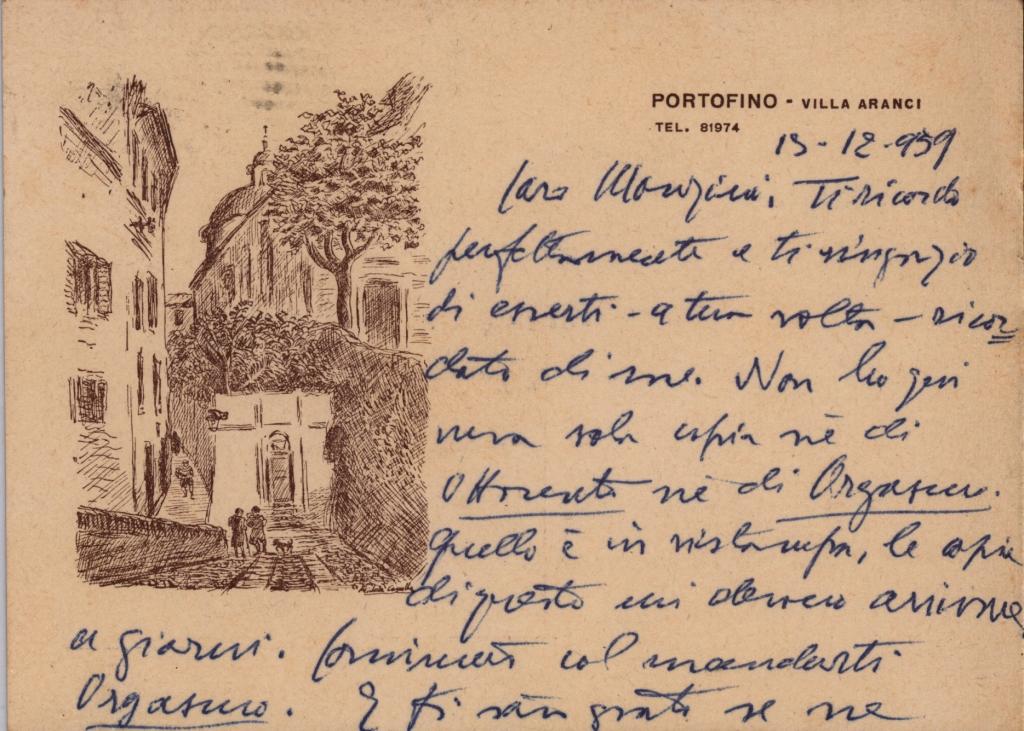 PORTOFINO - VILLA ARANCI
TEL. 81974
13-12-959
Caro Manzini, Ti ricordo
perfettamente e ti ringrazio
di esserti - a tua volta - ricor
dato di me. Non ho qui
nera sola copia nè di
Ottocento nè di Orgasmo.
Quello è in ristampa, le copie
di questo mi devono arrivare
a giorni. Comincerò col mandarti
Orgasmo. E ti sarò grato se ne